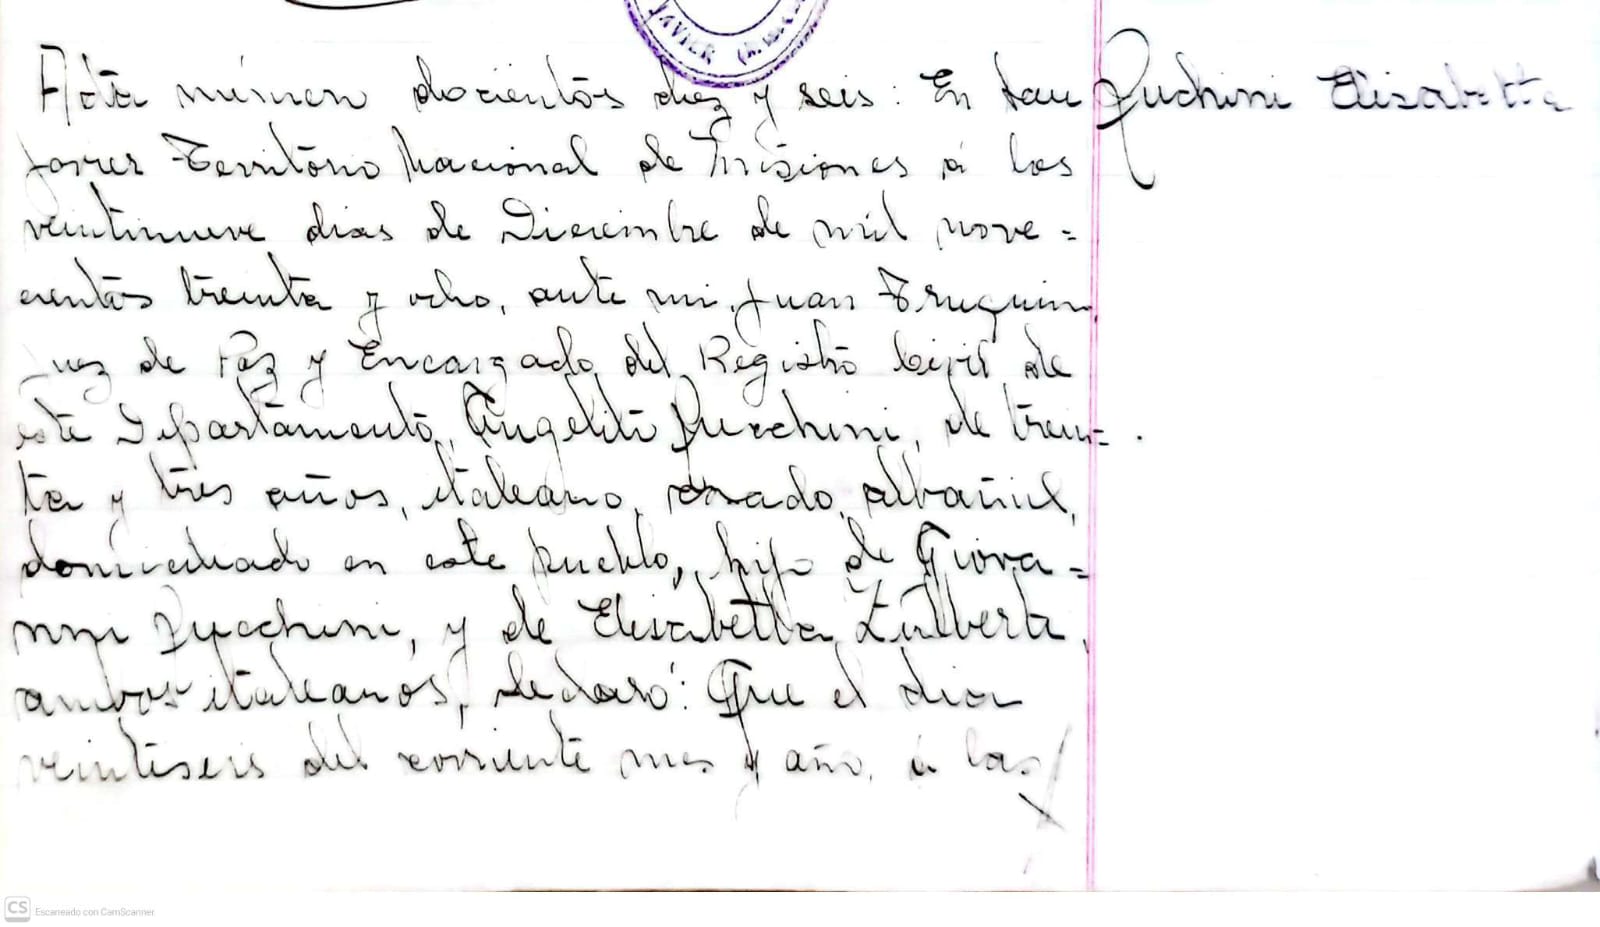 JAVIER (MISIONES)
Acta número docientos diez y seis: En San
Javier Territorio Nacional de Misiones á los
veintinueve dias de Diciembre de mil nove=
cientos treinta y ocho, ante mi, Juan
Juez de Paz y Encargado del Registro Civil de
este Departamento, Angelito Zucchini, de trein=
ta y tres años, italeano, casado, albañil,
domiciliado en este pueblo, hijo de Giova=
nni Zucchini, y de Elisabetta
ambos italeanos, declaró: Que el dia
veintiseis del corriente mes y año, á las
Zuchini Elisabetta
CS Escaneado con CamScanner